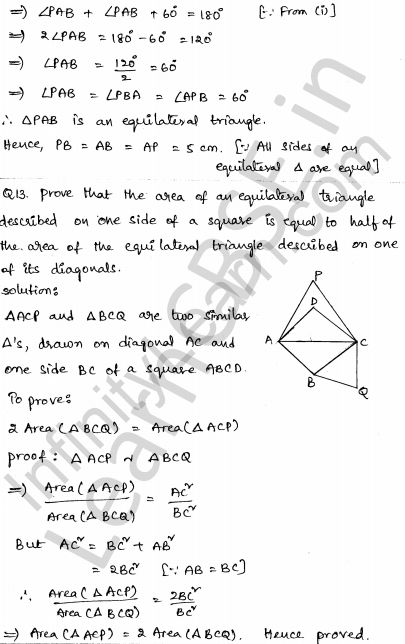 ⇒ ∠PAB + ∠PAB + 60° = 180° [∵ From (i)]
⇒ 2∠PAB = 180° - 60° = 120°
⇒ ∠PAB = 120°/2 = 60°
⇒ ∠PAB = ∠PBA = ∠APB = 60°
∴ ΔPAB is an equilateral triangle.
Hence, PB = AB = AP = 5 cm. [∵ All sides of an
equilateral Δ are equal]
Q13. Prove that the area of an equilateral triangle
described on one side of a square is equal to half of
the area of the equilateral triangle described on one
of its diagonals.
Solution:
ΔACP and ΔBCQ are two similar
Δ's, drawn on diagonal AC and
one side BC of a square ABCD.
P
D
A
C
B
Q
To prove:
2 Area (ΔBCQ) = Area (ΔACP)
proof: ΔACP ~ ΔBCQ
⇒ Area (ΔACP) / Area (ΔBCQ) = AC² / BC²
But AC² = BC² + AB²
= 2BC² [∵ AB = BC]
∴ Area (ΔACP) / Area (ΔBCQ) = 2BC² / BC²
⇒ Area (ΔACP) = 2 Area (ΔBCQ). Hence proved.